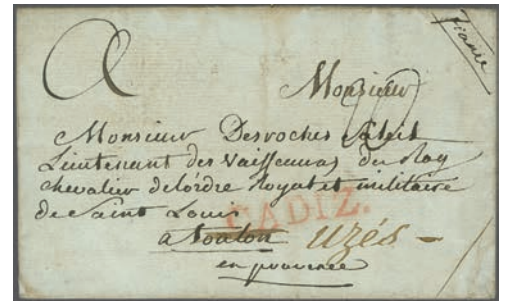 france
A
Monsieur
Monsieur Desroches
Lieutenant des Vaisseaux du Roy
chevalier de lórdre Royal et militaire
de Saint Louis
CADIZ.
a Toulon Uzés
en provence